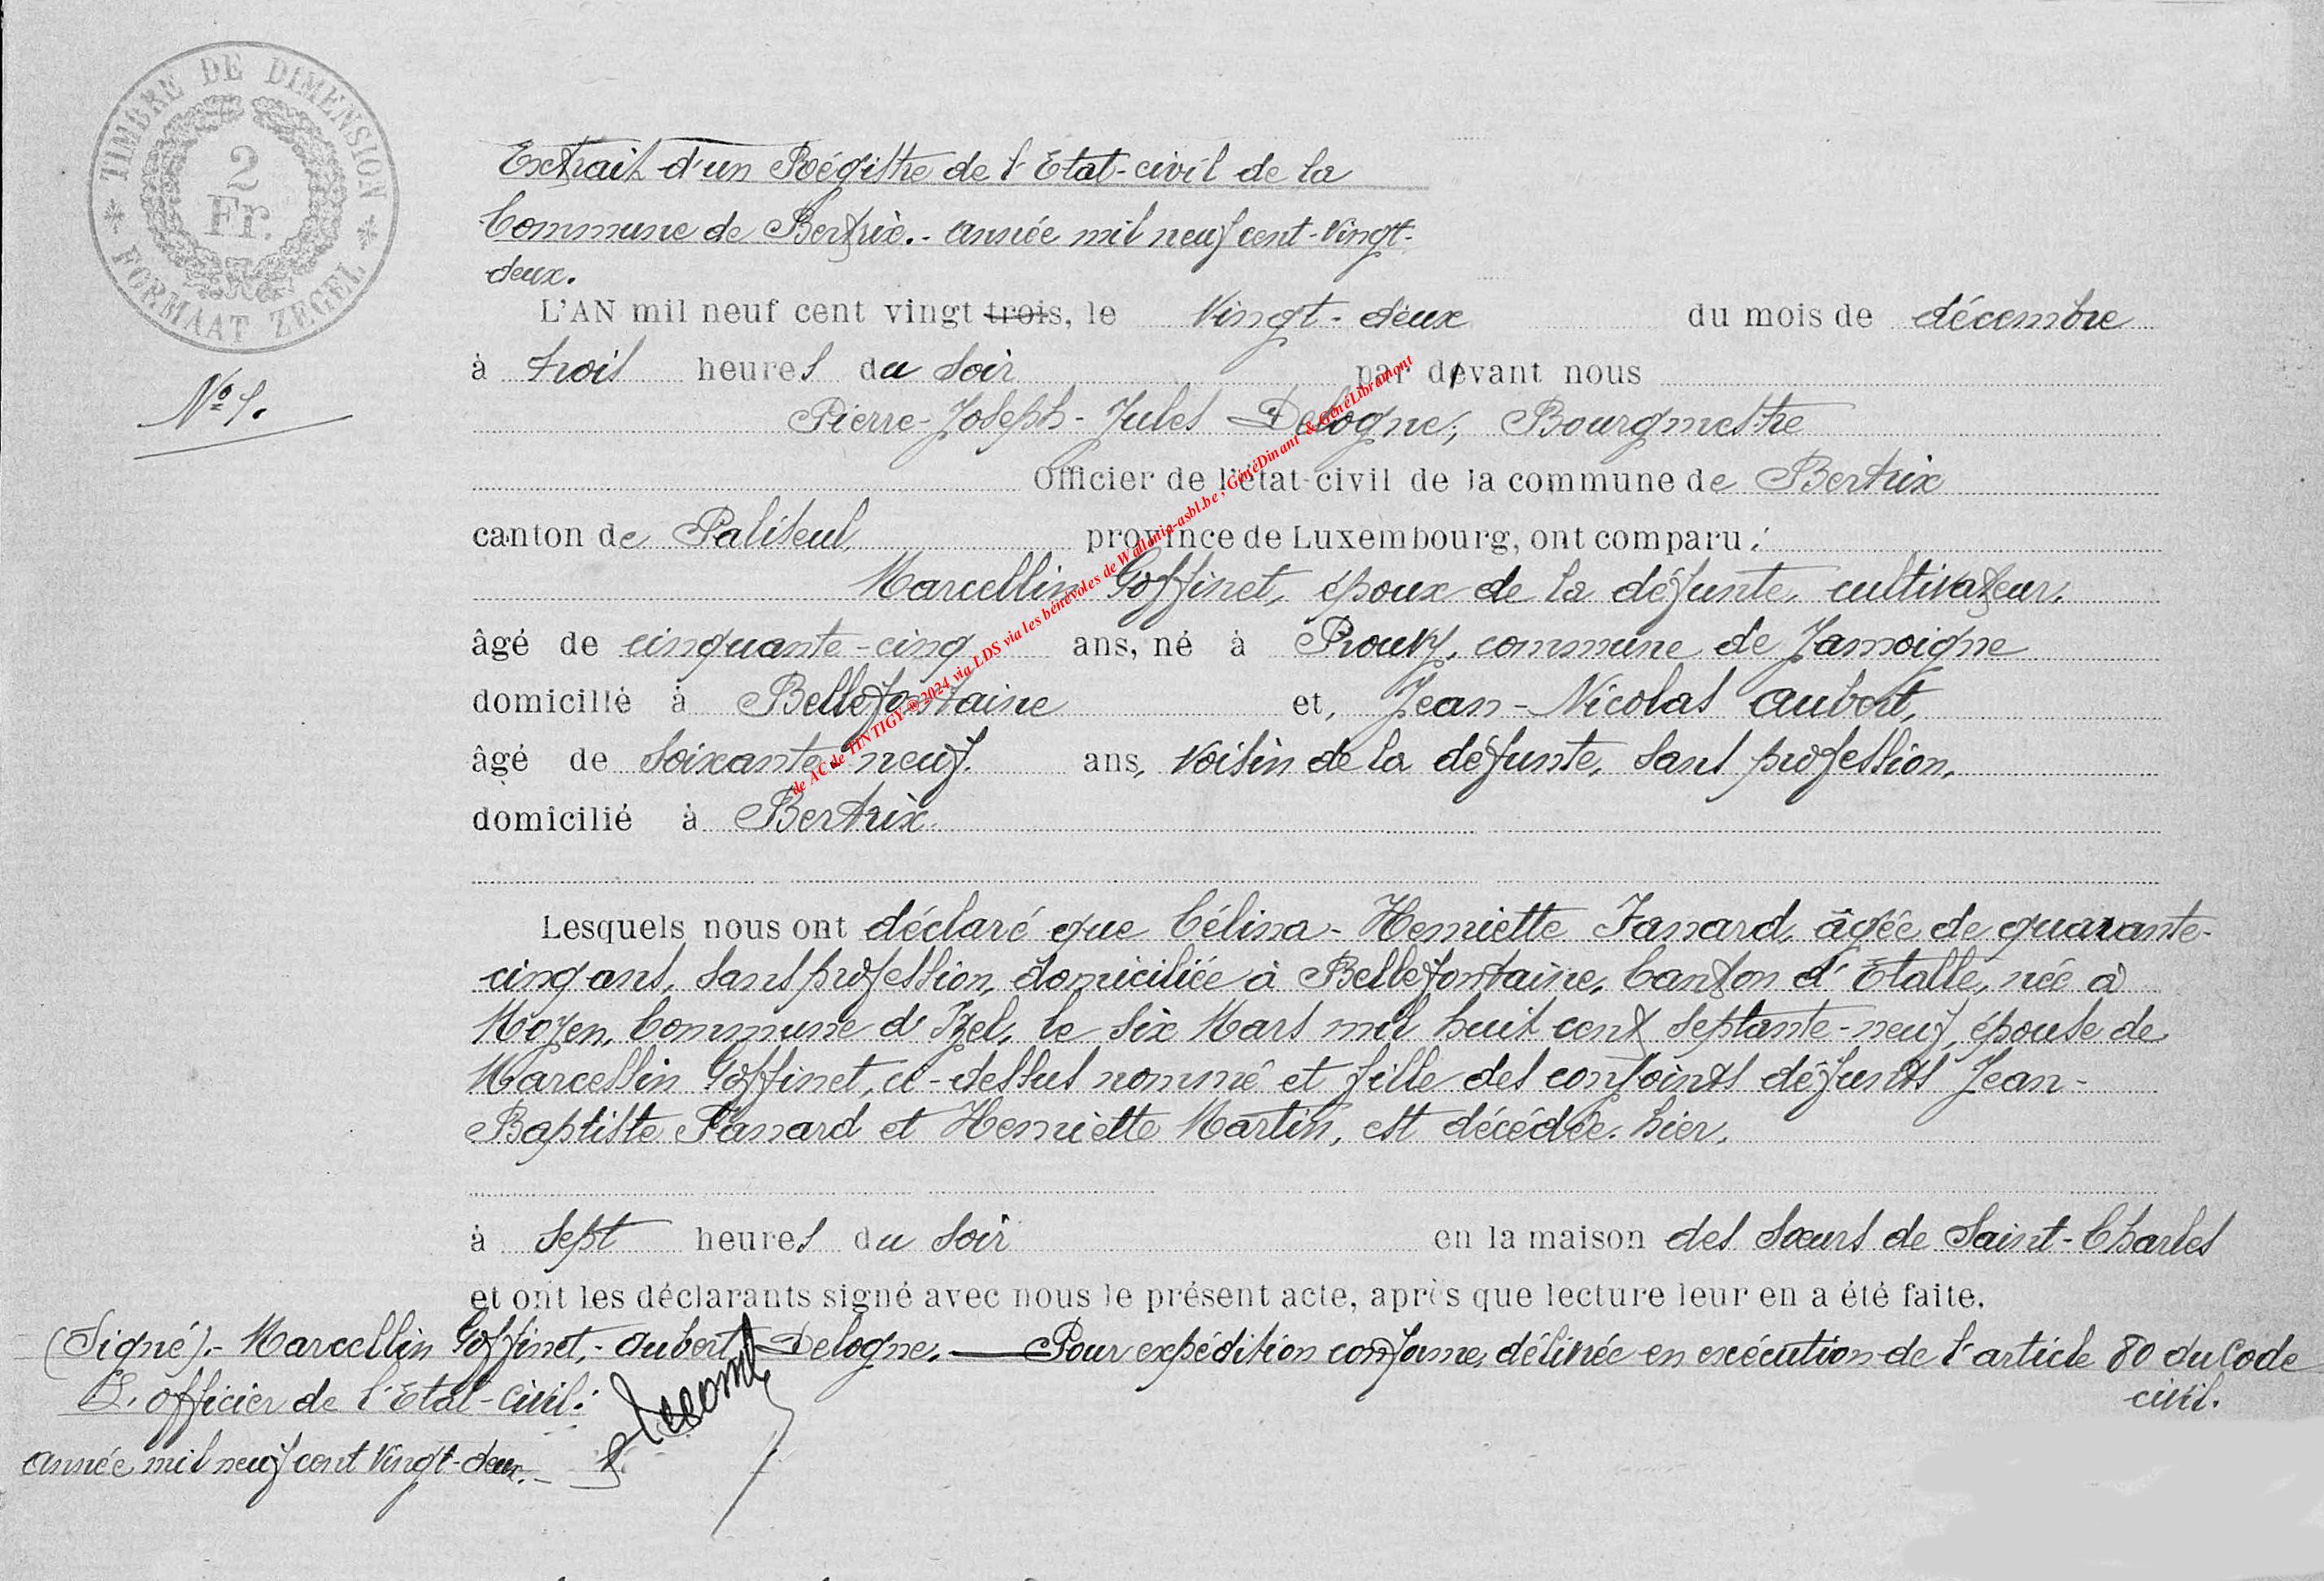 TIMBRE DE DIMENSION
2
Fr.
FORMAAT ZEGEL
Extrait d'un Régistre de l'Etat-civil de la
Commune de Bertrix.- année mil neuf cent-vingt-
deux.
L'AN mil neuf cent vingt trois, le vingt-deux du mois de décembre
à trois heures du soir par devant nous
Nº 1.
Pierre-Joseph-Jules Delogne, Bourgmestre
Officier de l'état-civil de la commune de Bertrix
canton de Paliseul, province de Luxembourg, ont comparu :
Marcellin Goffinet, époux de la défunte, cultivateur,
âgé de cinquante-cinq ans, né à Prouvy, commune de Jamoigne
domicilié à Bellefontaine et, Jean-Nicolas Aubert,
âgé de soixante-neuf ans, voisin de la défunte, sans profession,
domicilié à Bertrix.
de AC de TINTIGY ® 2024 via LDS via les bénévoles de Wallonia-asbl.be , GénéDinant & GénéLibramont
Lesquels nous ont déclaré que Célina-Henriette Fanard, âgée de quarante-
cinq ans, sans profession, domiciliée à Bellefontaine, Canton d'Etalle, née à
Moyen, Commune d'Izel, le six Mars mil huit cent septante-neuf, épouse de
Marcellin Goffinet, ci-dessus nommé et fille des conjoints défunts Jean-
Baptiste Fanard et Henriette Martin, est décédée hier,
à sept heures du soir en la maison des Sœurs de Saint-Charles
et ont les déclarants signé avec nous le présent acte, après que lecture leur en a été faite.
(Signé).- Marcellin Goffinet,- Aubert, Delogne. Pour expédition conforme, délivrée en exécution de l'article 80 du Code
civil.
L'officier de l'Etat-Civil:
année mil neuf cent vingt-deux.-